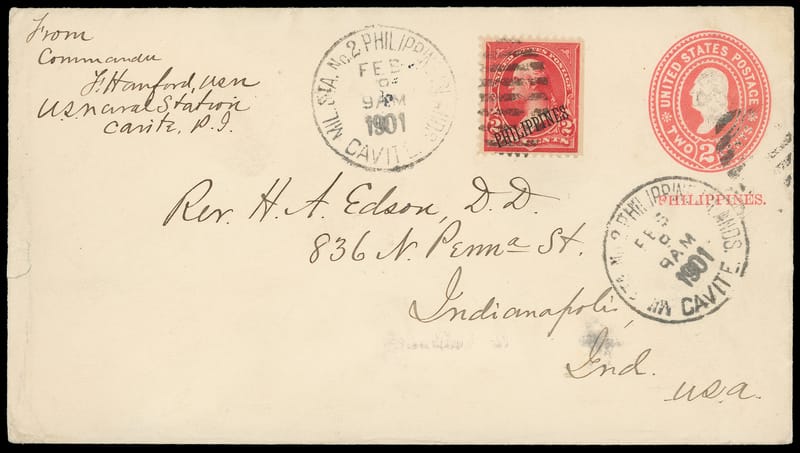 From
Commander
F. Hanford, USN
U.S. Naval Station
Cavite, P.I.
MIL. STA. No. 2 PHILIPPINE ISLANDS.
FEB
9AM
1901
CAVITE
UNITED STATES POSTAGE
PHILIPPINES
2 CENTS 2
UNITED STATES POSTAGE
TWO 2 CENTS
PHILIPPINES.
STA. No. 2 PHILIPPINE ISLANDS.
FEB
9AM
1901
MIL. CAVITE
Rev. H. A. Edson, D.D.
836 N. Penna St.
Indianapolis,
Ind.
U.S.A.